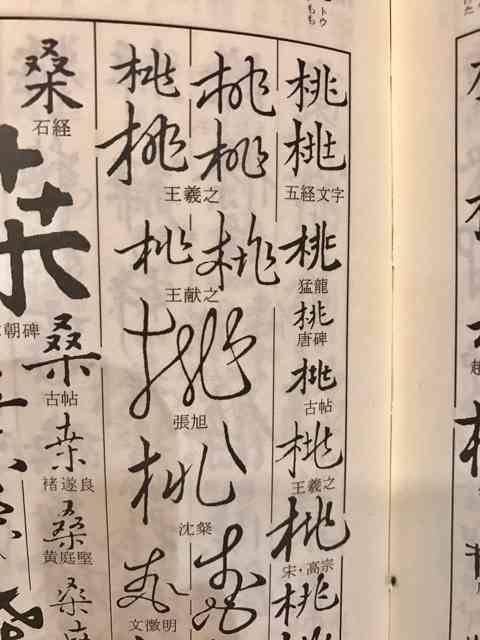 トウ
もも
桃
桃
五経文字
桃
猛龍
桃
唐碑
桃
古帖
桃
王羲之
桃
宋・高宗
桃
桃桃
桃桃
王羲之
桃桃
王献之
桃
張旭
桃
沈粲
桃桃
文徴明
桑
石経
朝碑
桑
古帖
桑
褚遂良
桑
黄庭堅
桑